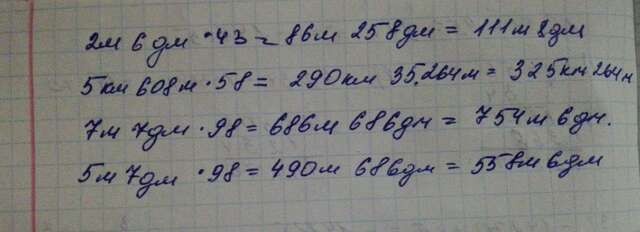 2м 6дм · 43 = 86м 258дм = 111м 8дм
5км 608м · 58 = 290км 35.264м = 325км 264м
7м 7дм · 98 = 686м 686дм = 754м 6дм.
5м 7дм · 98 = 490м 686дм = 558м 6дм